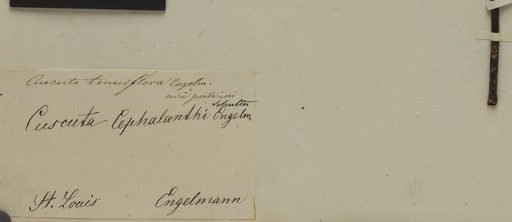 Cuscuta tenuiflora Engelm.
curâ posteriori
Cuscuta Cephalanthi Engelm
St. Louis Engelmann